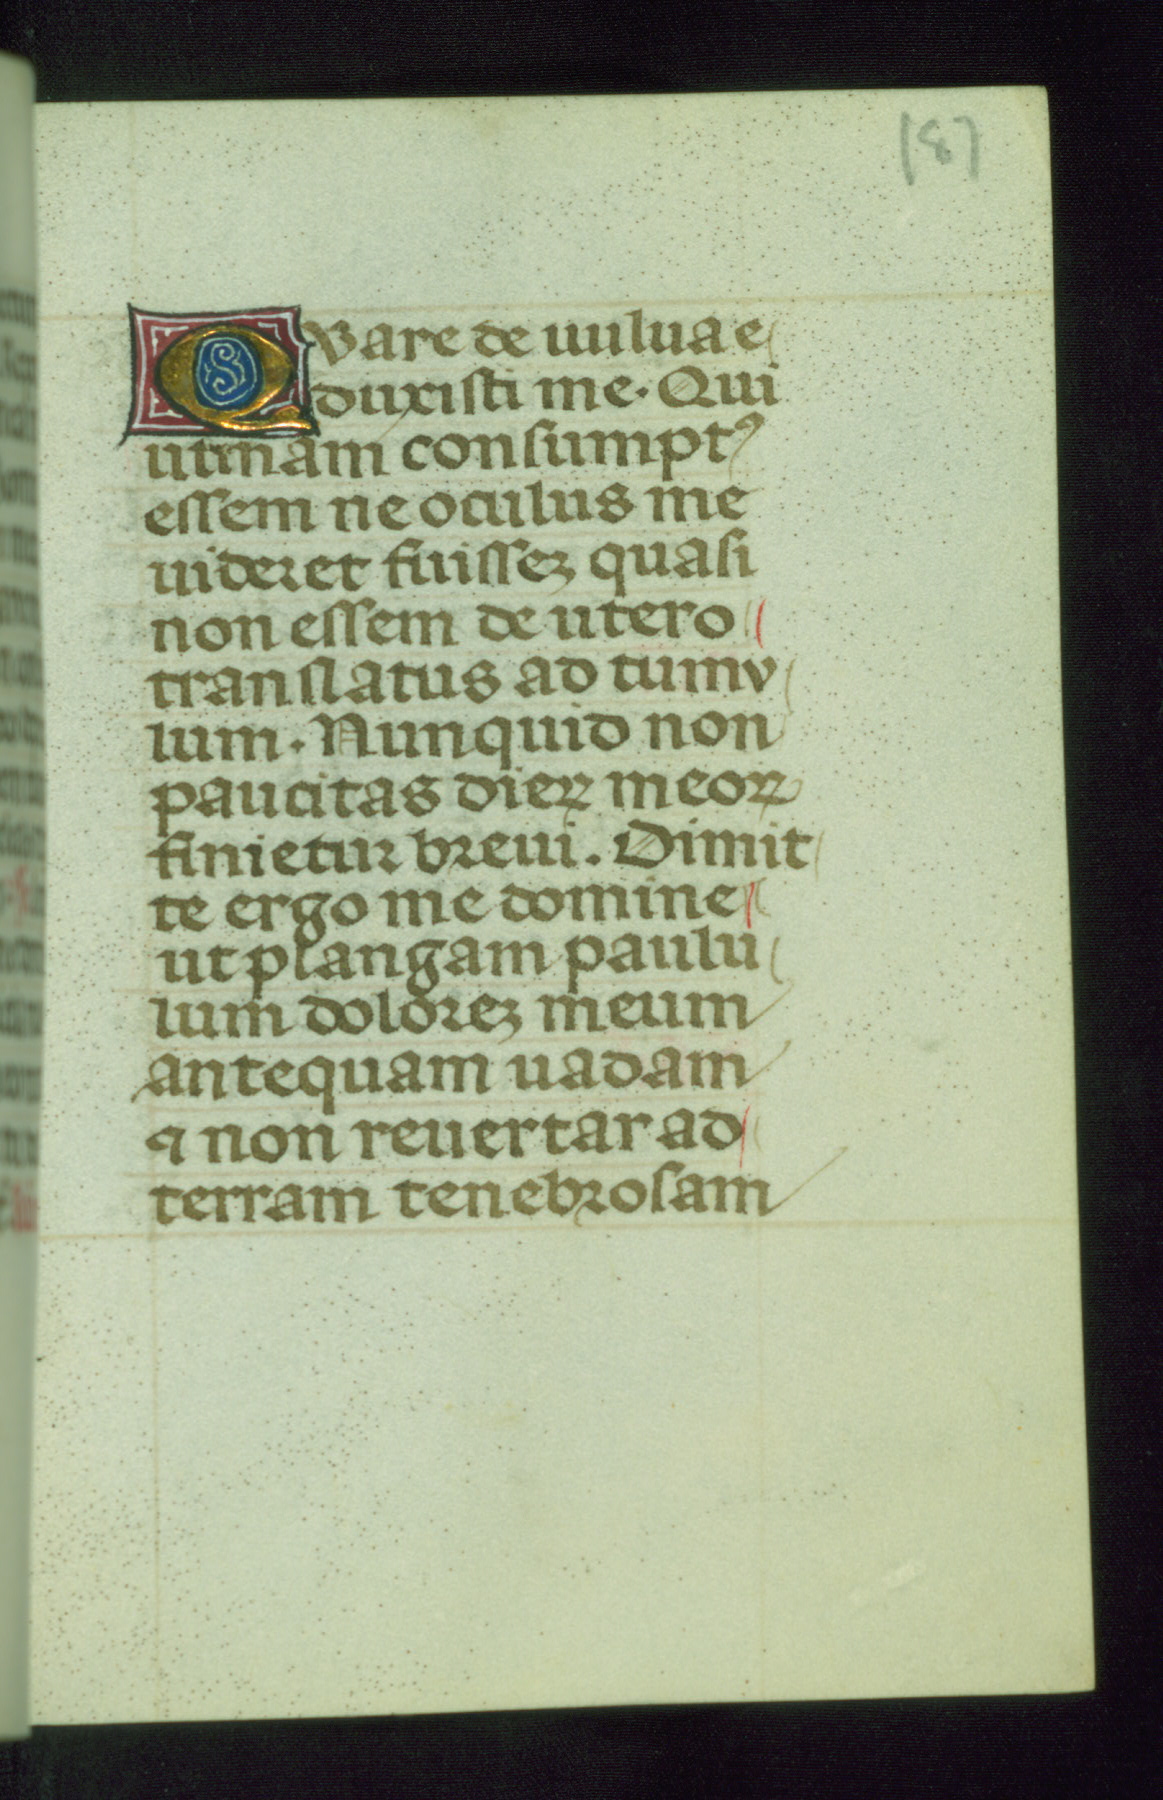 187
Quare de uulua e
duxisti me. Qui
utinam consumptꝰ
essem ne oculus me
uideret fuisseꝫ quasi
non essem de utero
translatus ad tumv
lum. Nunquid non
paucitas dieꝝ meoꝝ
finietur breui. Dimit
te ergo me domine
ut plangam paulu
lum doloreꝫ meum
antequam uadam
⁊ non reuertar ad
terram tenebrosam